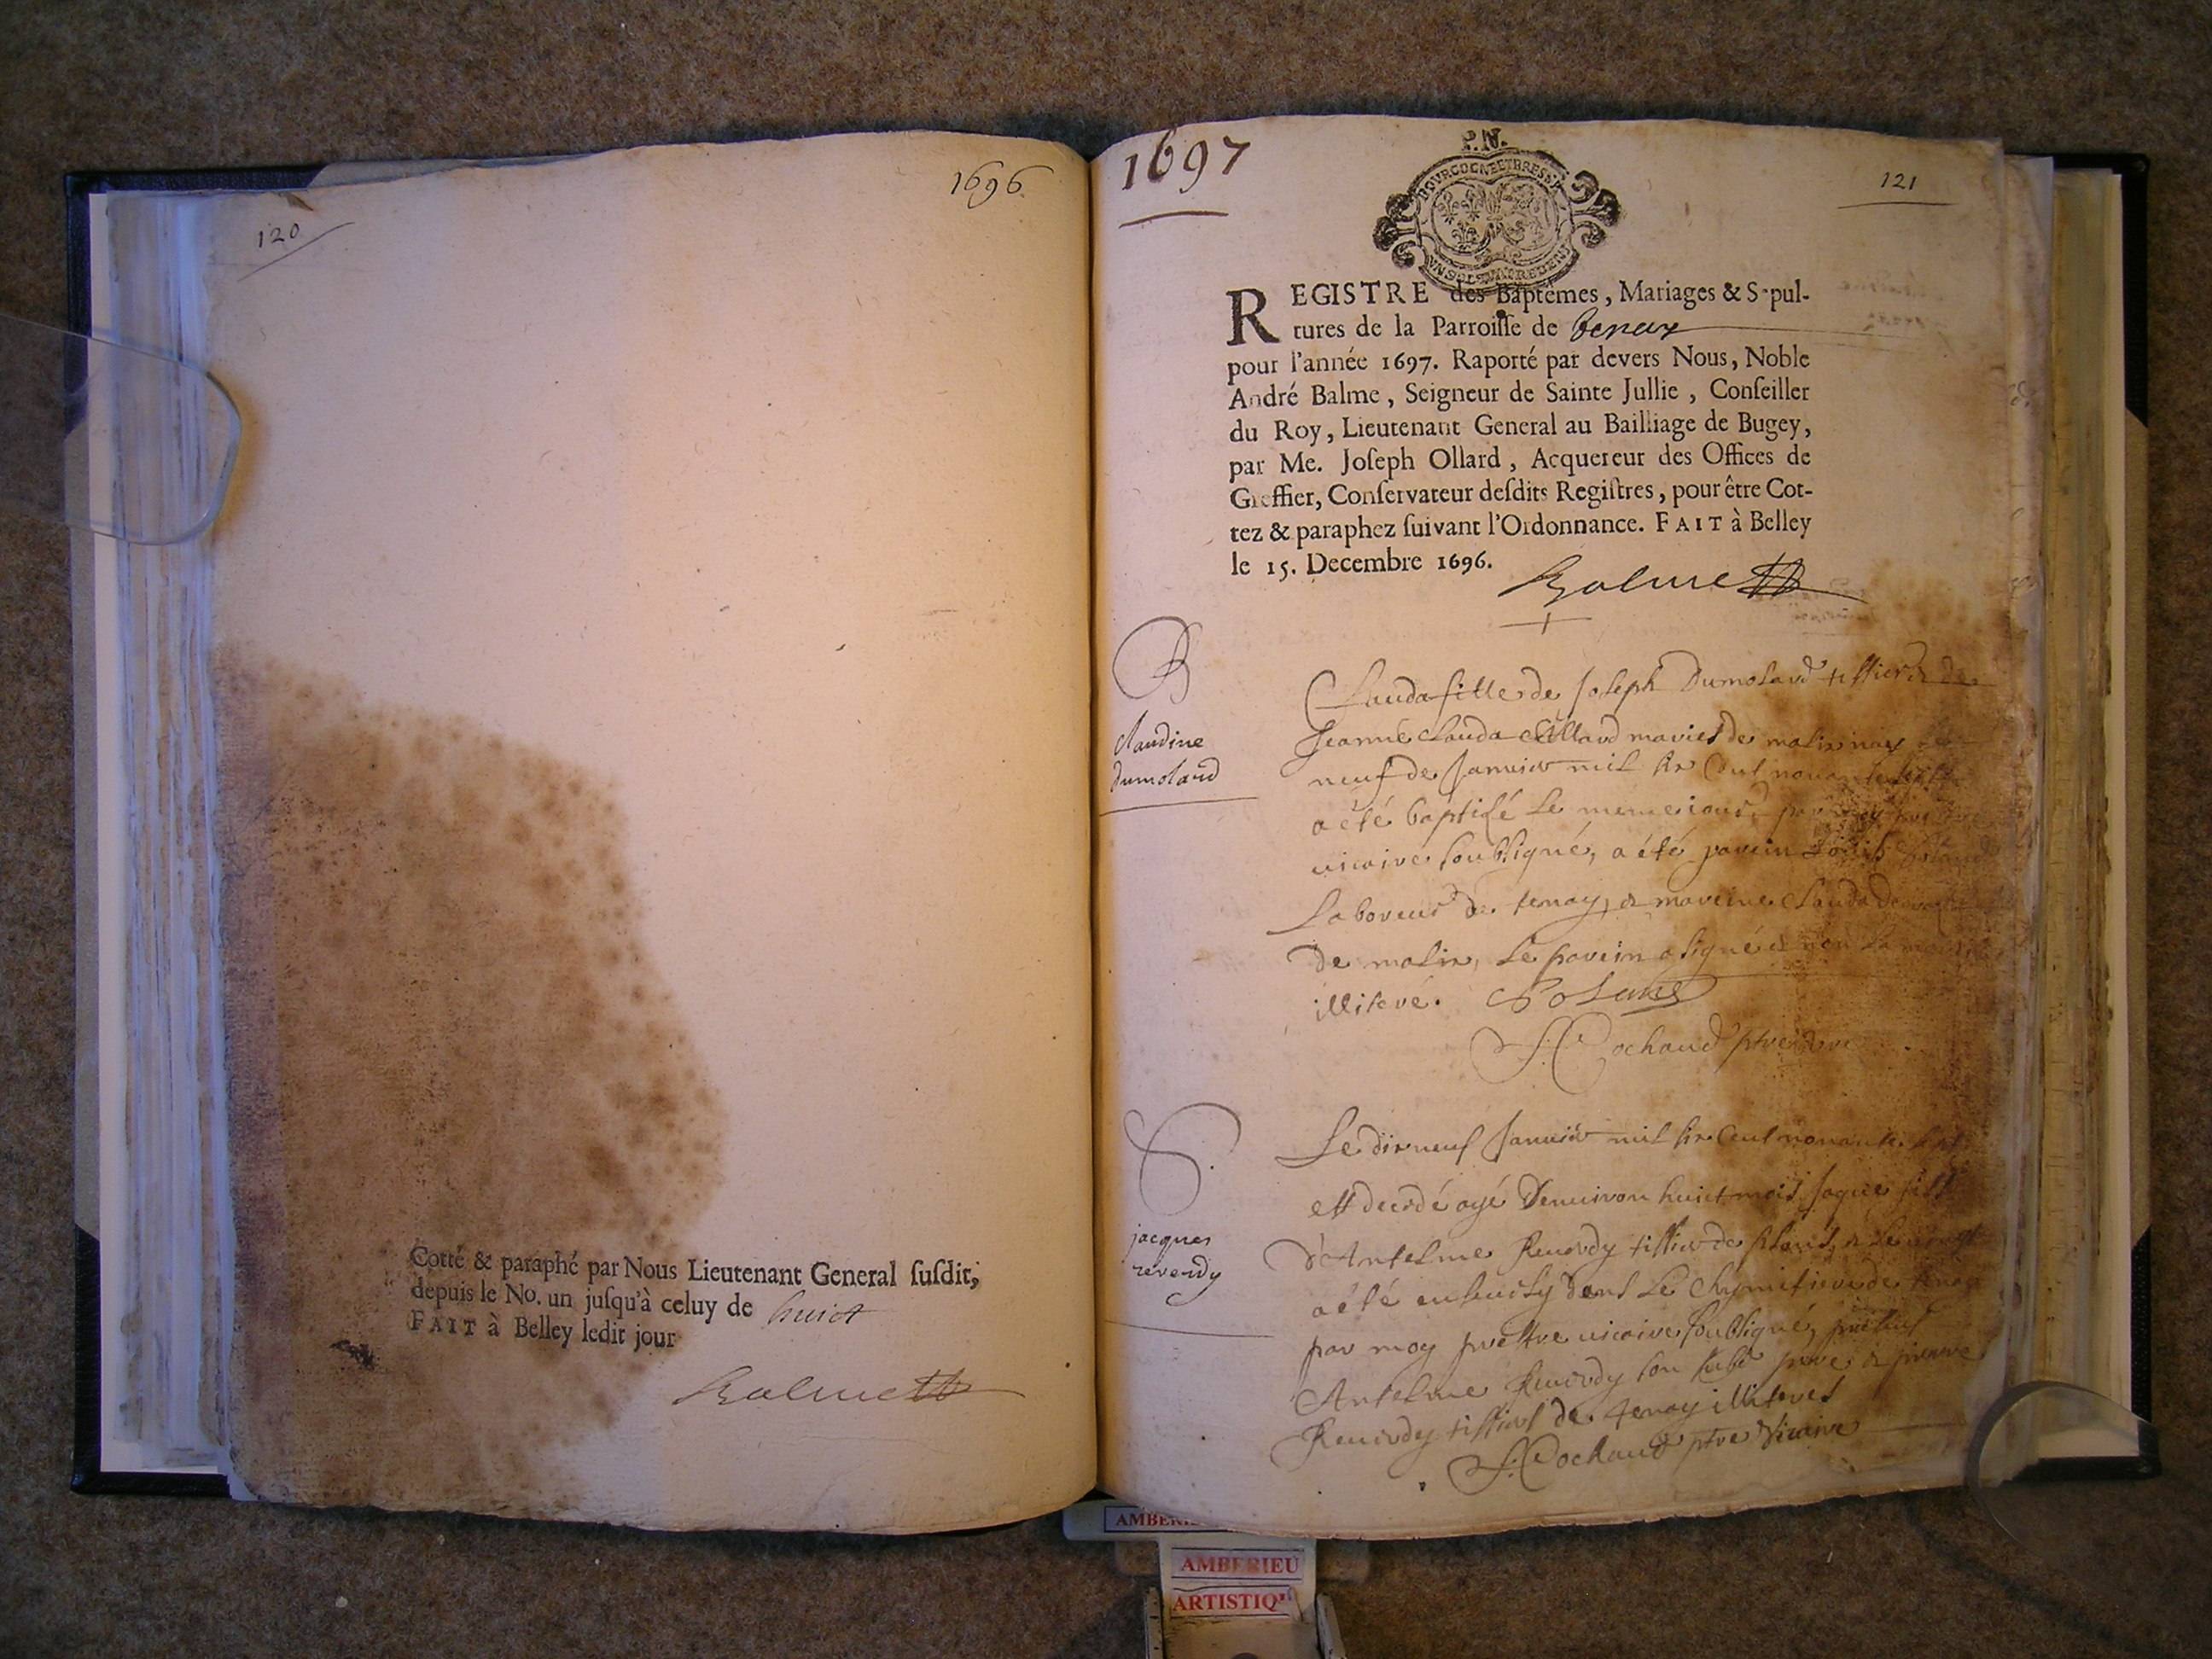 120
1696
Cotté & paraphé par Nous Lieutenant General ſuſdit,
depuis le No. un juſqu'à celuy de huict
FAIT à Belley ledit jour
Balme
1697
P. N.
121
REGISTRE des Baptêmes, Mariages & Sepul-
tures de la Parroiſſe de Tenay
pour l'année 1697. Raporté par devers Nous, Noble
André Balme, Seigneur de Sainte Jullie, Conſeiller
du Roy, Lieutenant General au Bailliage de Bugey,
par Me. Joſeph Ollard, Acquereur des Offices de
Greffier, Conſervateur deſdits Regiſtres, pour être Cot-
tez & paraphez ſuivant l'Ordonnance. FAIT à Belley
le 15. Decembre 1696.
Balme
B
claudine
dumolard
Clauda fille de Joseph Dumolard tissier & de
Jeanne Clauda mariés de malix
neuf de Janvier mil six Cent nonante sept
a été baptisé le meme iour par moy
vicaire soubsigné, a été parein
Laboreur de tenay, & mareine Clauda
de malix, le parein a signé et non la
illiteré.
J. Cochaud ptre
S.
jacques
reverdy
Le dix neuf Janvier mil six Cent nonante sept
est decedé agé Denviron huict mois Jaque fils
d'Antelme Reverdy tissier de &
a été ensevely dans le Chymitiere de tenay
par moy prestre vicaire soubsigné, presens
Antelme Reverdy son pere & pierre
Reverdy tissiers de tenay illiterés
J. Cochaud ptre Vicaire
AMBERIEU
ARTISTIQU